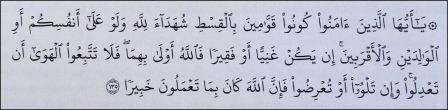 ۞ يَـٰٓأَيُّهَا ٱلَّذِينَ ءَامَنُوا۟ كُونُوا۟ قَوَّٰمِينَ بِٱلْقِسْطِ شُهَدَآءَ لِلَّهِ وَلَوْ عَلَىٰٓ أَنفُسِكُمْ أَوِ
ٱلْوَٰلِدَيْنِ وَٱلْأَقْرَبِينَ ۚ إِن يَكُنْ غَنِيًّا أَوْ فَقِيرًا فَٱللَّهُ أَوْلَىٰ بِهِمَا ۖ فَلَا تَتَّبِعُوا۟ ٱلْهَوَىٰٓ أَن
تَعْدِلُوا۟ ۚ وَإِن تَلْوُۥٓا۟ أَوْ تُعْرِضُوا۟ فَإِنَّ ٱللَّهَ كَانَ بِمَا تَعْمَلُونَ خَبِيرًا ۝١٣٥